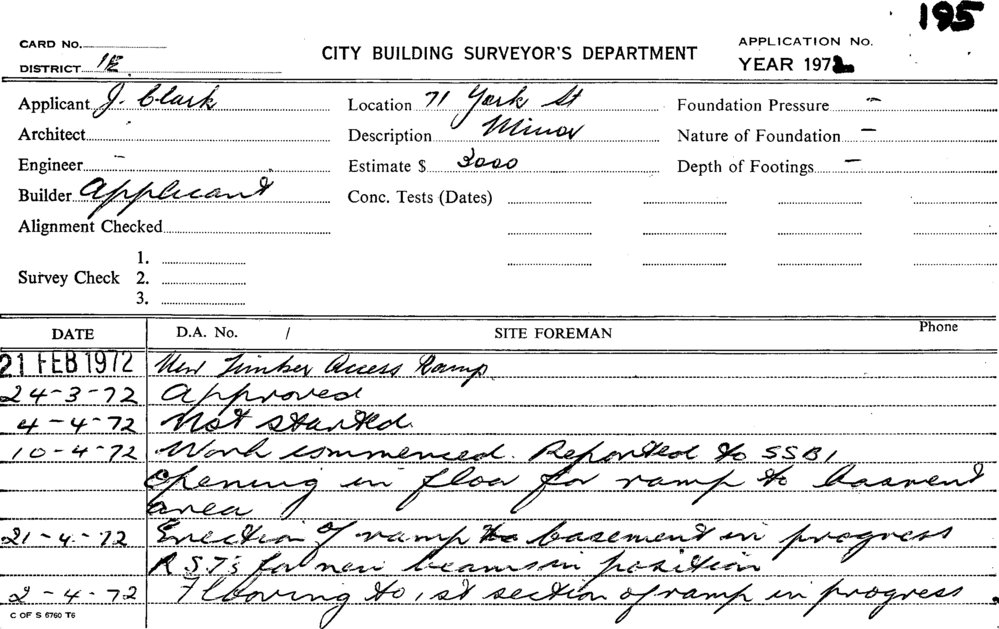 195
CARD No.
CITY BUILDING SURVEYOR'S DEPARTMENT
APPLICATION No.
DISTRICT 1E
YEAR 1972
Applicant J. Clark
Location 71 York St
Foundation Pressure –
Architect
Description Minor
Nature of Foundation –
Engineer –
Estimate $ 3000
Depth of Footings –
Builder Applicant
Conc. Tests (Dates)
Alignment Checked
Survey Check 1.
2.
3.
DATE D.A. No. / SITE FOREMAN Phone
21 FEB 1972 New Timber Access Ramp
24-3-72 Approved
4-4-72 Not started.
10-4-72 Work commenced. Reported to SSBI
Opening in floor for ramp to basment
area
21-4-72 Erection of ramp to basement in progress
R.S.J's for new beams in position
2-4-72 Flooring to 1st section of ramp in progress.
C OF S 6760 T6